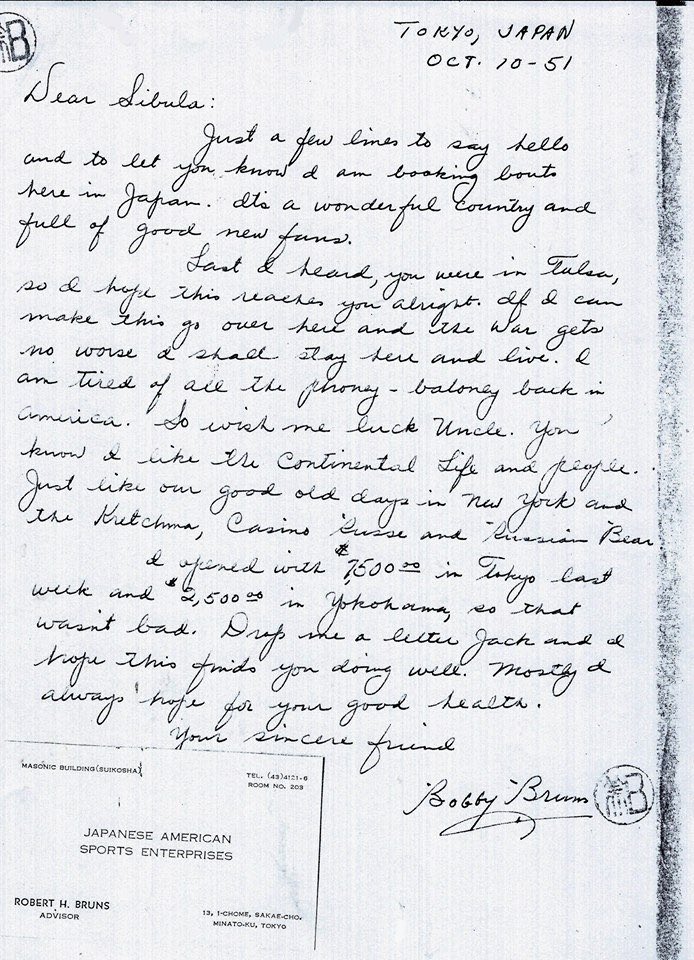 TOKYO, JAPAN
OCT. 10-51
Dear Sibula:
Just a few lines to say hello
and to let you know I am booking bouts
here in Japan. It's a wonderful country and
full of good new fans.
Last I heard, you were in Tulsa,
so I hope this reaches you alright. If I can
make this go over here and the war gets
no worse I shall stay here and live. I
am tired of all the phoney-baloney back in
America. So wish me luck Uncle. You
know I like the Continental Life and people.
Just like our good old days in New York and
the Kretchma, Casino Russe and Russian Bear
I opened with $7,500.00 in Tokyo last
week and $2,500.00 in Yokohama, so that
wasn't bad. Drop me a letter Jack and I
hope this finds you doing well. Mostly I
always hope for your good health.
Your sincere friend
Bobby Bruns
MASONIC BUILDING (SUIKOSHA)
TEL. (43)4121-6
ROOM NO. 203
JAPANESE AMERICAN
SPORTS ENTERPRISES
ROBERT H. BRUNS
ADVISOR
13, 1-CHOME, SAKAE-CHO,
MINATO-KU, TOKYO